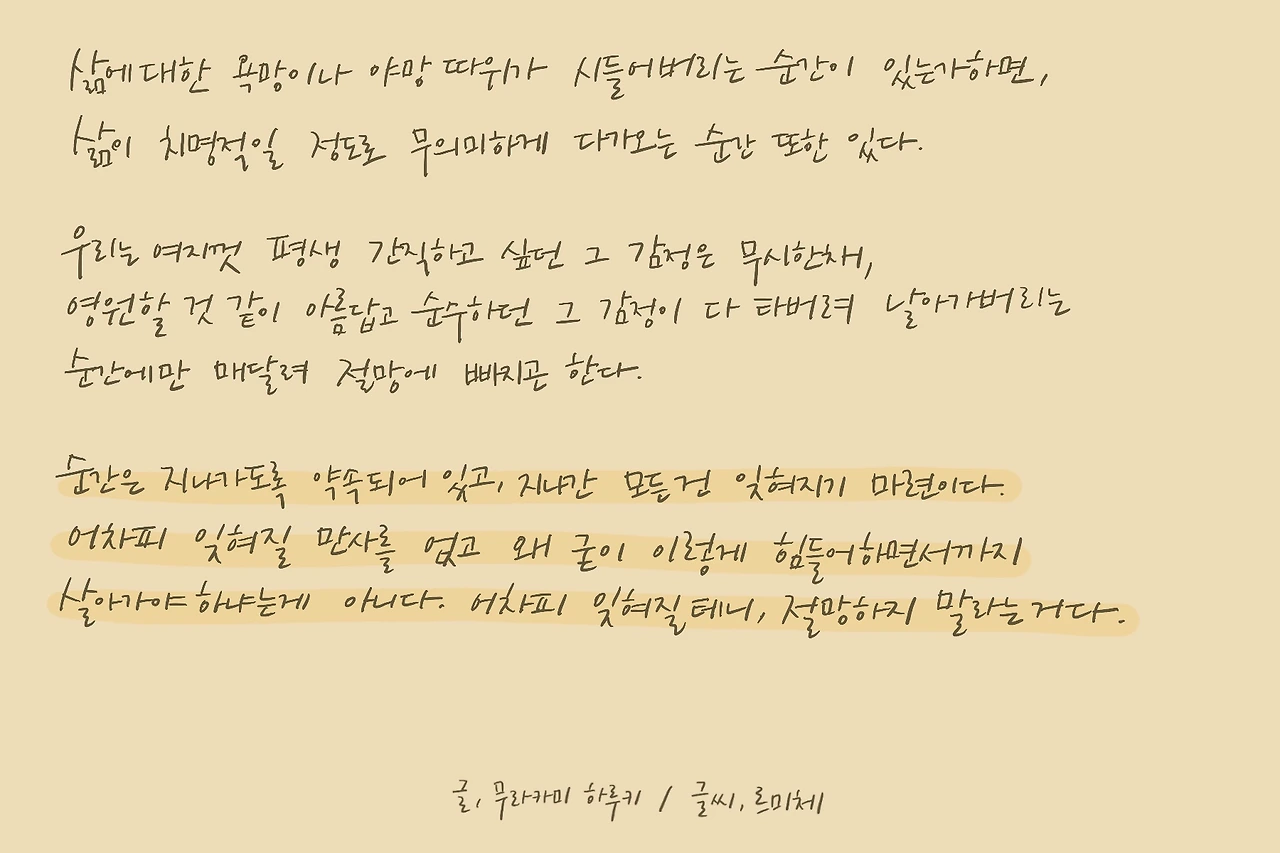 삶에 대한 욕망이나 야망 따위가 시들어버리는 순간이 있는가하면,
삶이 치명적일 정도로 무의미하게 다가오는 순간 또한 있다.
우리는 여지껏 평생 간직하고 싶던 그 감정은 무시한채,
영원할 것 같이 아름답고 순수하던 그 감정이 다 타버려 날아가버리는
순간에만 매달려 절망에 빠지곤 한다.
순간은 지나가도록 약속되어 있고, 지나간 모든건 잊혀지기 마련이다.
어차피 잊혀질 만사를 얹고 왜 굳이 이렇게 힘들어하면서까지
살아가야 하냐는게 아니다. 어차피 잊혀질테니, 절망하지 말라는거다.
글, 무라카미 하루키 / 글씨, 르미체